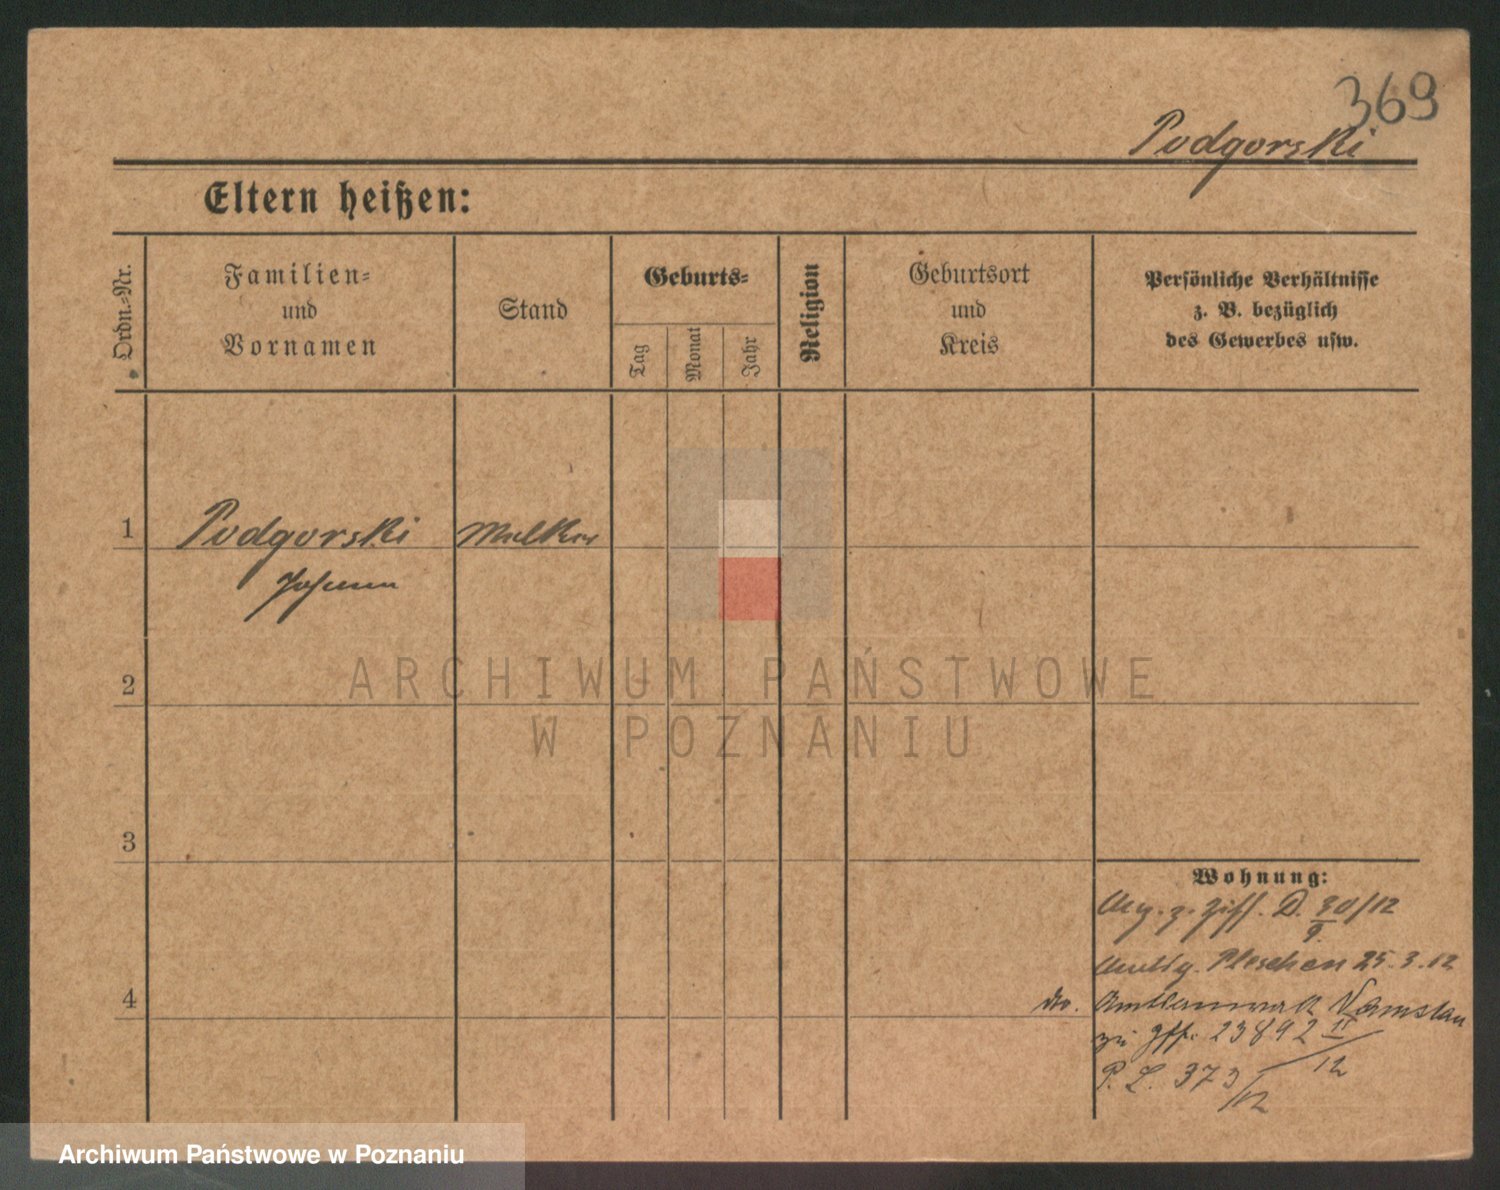 369
Podgorski
Eltern heißen:
Ordn.-Nr.
Familien-
und
Vornamen
Stand
Geburts-
Tag
Monat
Jahr
Religion
Geburtsort
und
Kreis
Persönliche Verhältnisse
z. B. bezüglich
des Gewerbes usw.
1
Podgorski
Melker
Johann
2
ARCHIWUM PAŃSTWOWE
W POZNANIU
3
Wohnung:
z. Ziff. D. 30/12
9.
Pleschen 25.3.12
4
do. Amtsanwalt Namslau
zu 23892 II
12
P. L. 373
/12
Archiwum Państwowe w Poznaniu